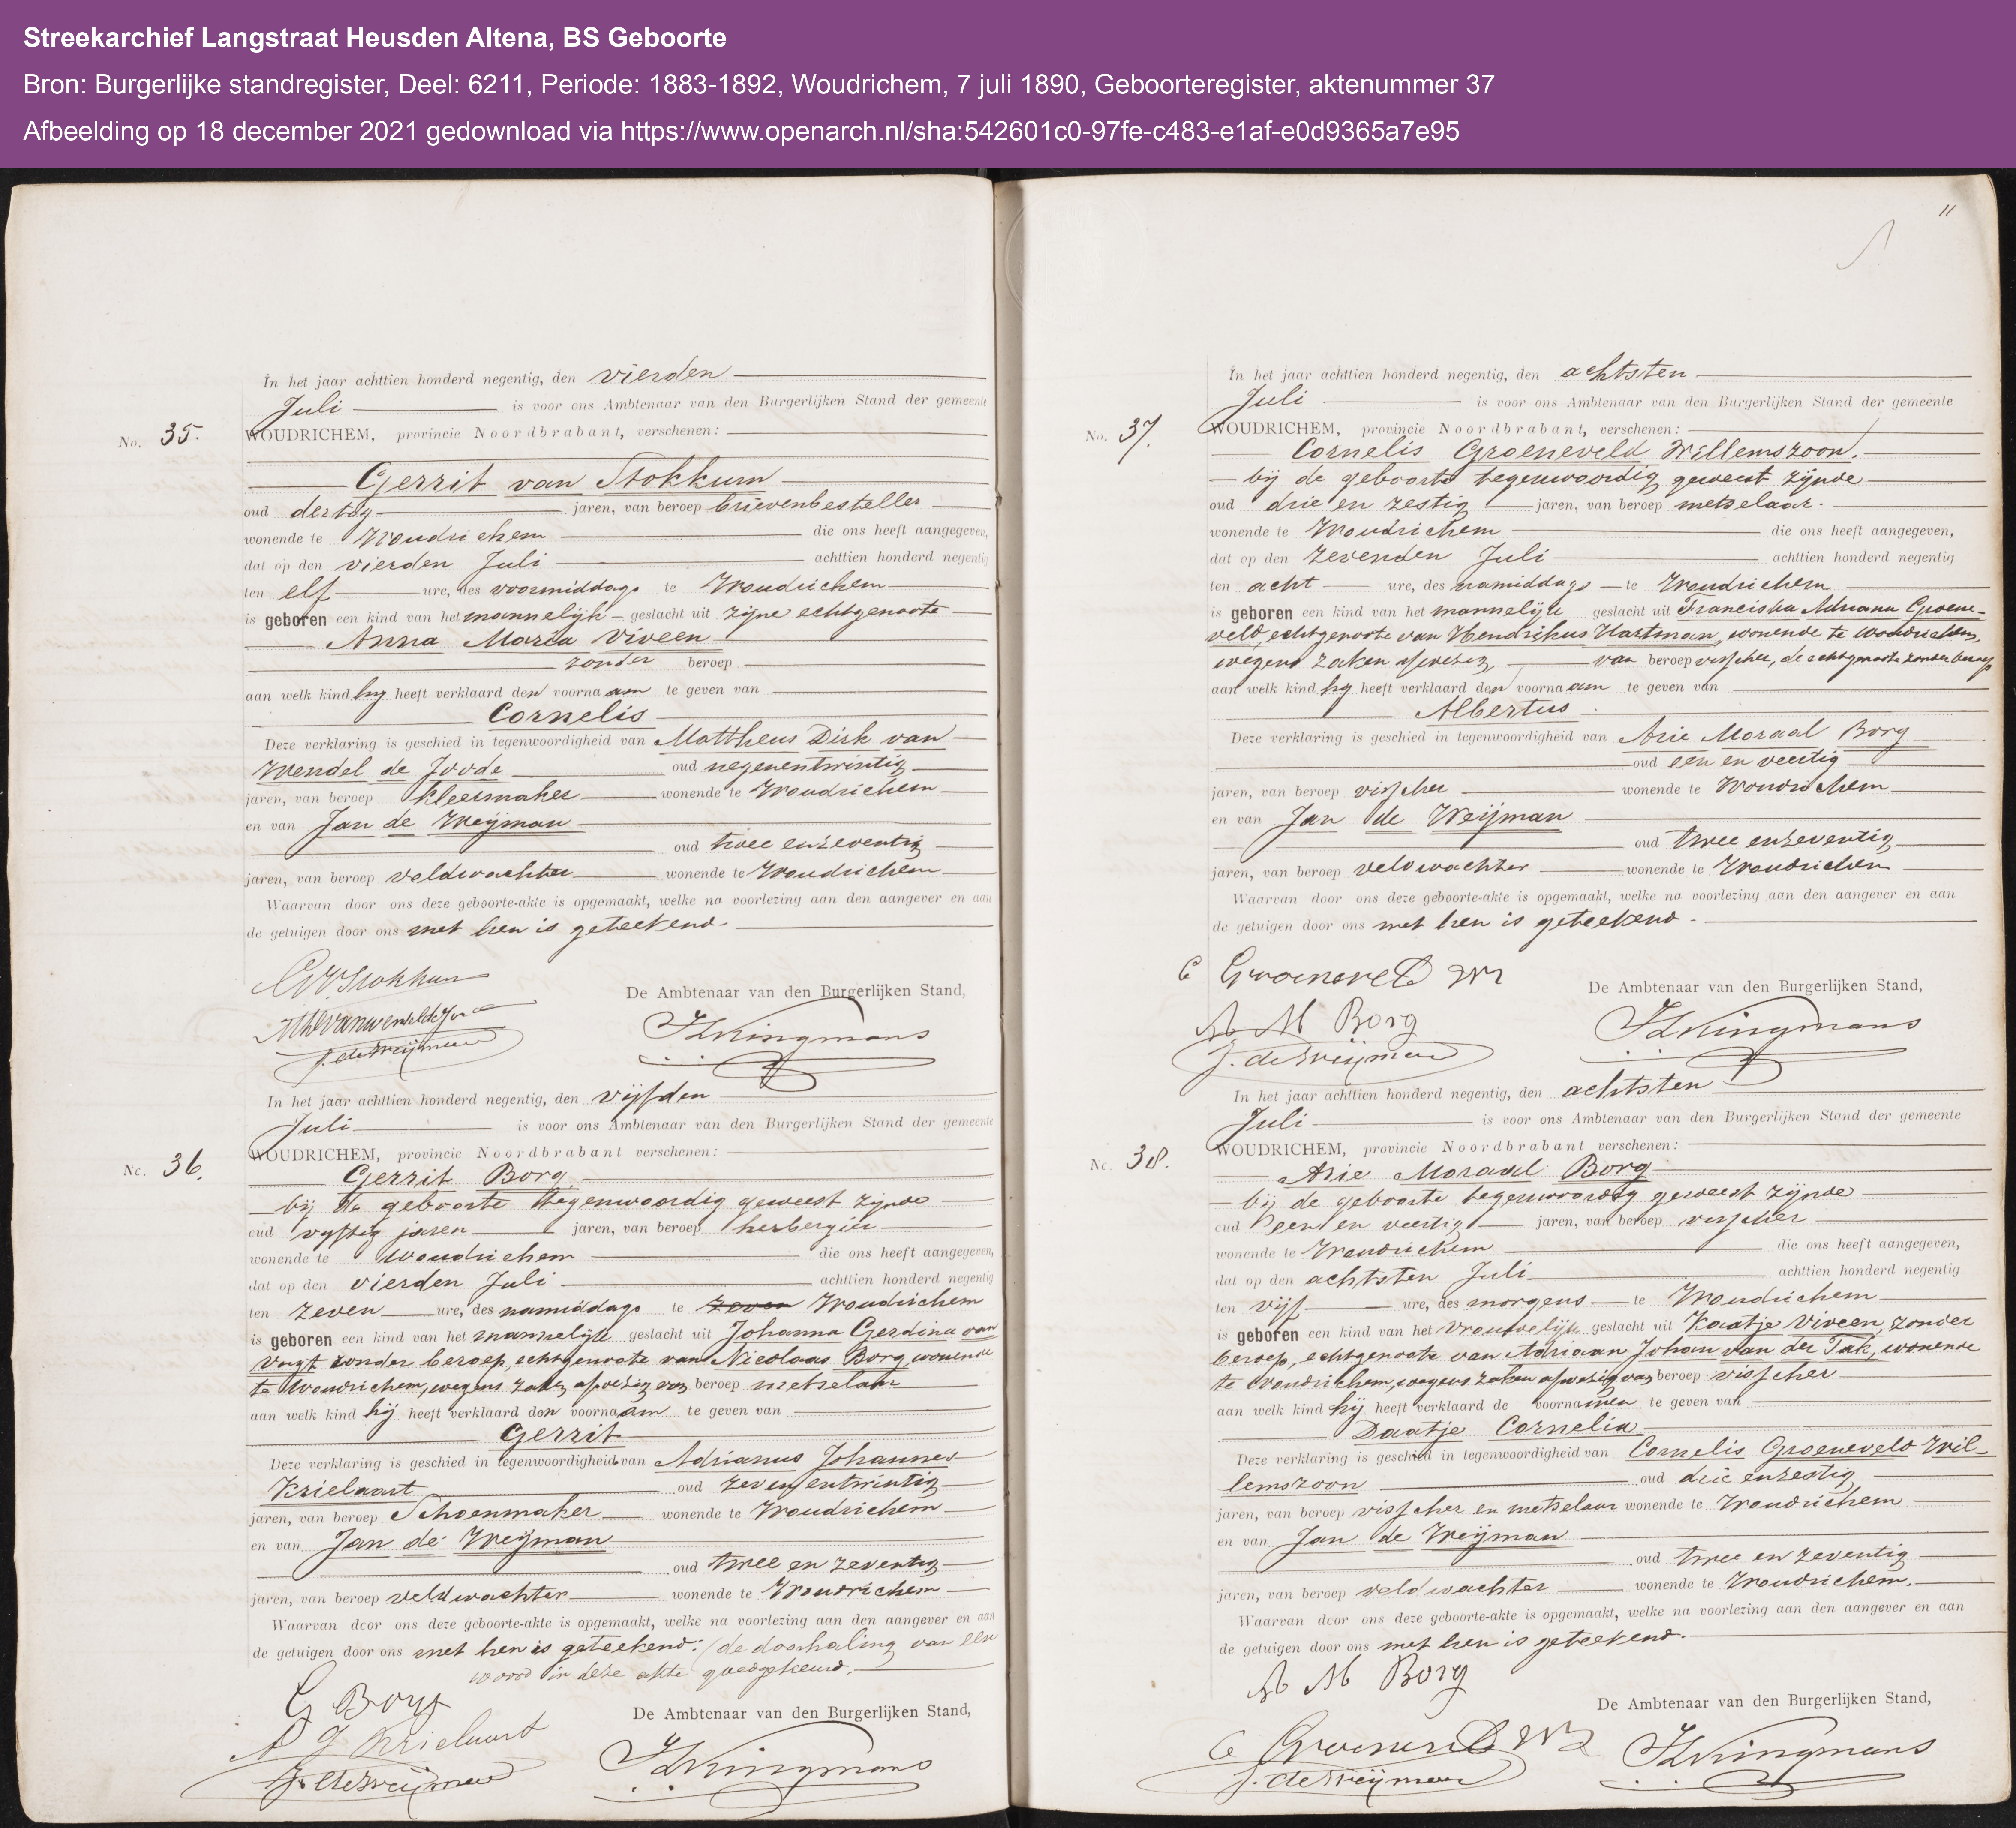 Streekarchief Langstraat Heusden Altena, BS Geboorte
Bron: Burgerlijke standregister, Deel: 6211, Periode: 1883-1892, Woudrichem, 7 juli 1890, Geboorteregister, aktenummer 37
Afbeelding op 18 december 2021 gedownload via https://www.openarch.nl/sha:542601c0-97fe-c483-e1af-e0d9365a7e95
In het jaar achttien honderd negentig, den vierden
Juli is voor ons Ambtenaar van den Burgerlijken Stand der gemeente
No. 35. WOUDRICHEM, provincie Noordbrabant, verschenen:
Gerrit van Stokkum
oud dertig jaren, van beroep brievenbesteller
wonende te Woudrichem die ons heeft aangegeven,
dat op den vierden Juli achttien honderd negentig
ten elf ure, des voormiddags te Woudrichem
is geboren een kind van het mannelijk geslacht uit zijne echtgenoote
Anna Maria Viveen
zonder beroep
aan welk kind hij heeft verklaard den voornaam te geven van
Cornelis
Deze verklaring is geschied in tegenwoordigheid van Mattheus Dirk van
Wendel de Joode oud negenentwintig
jaren, van beroep kleermaker wonende te Woudrichem
en van Jan de Weijman
oud twee enzeventig
jaren, van beroep veldwachter wonende te Woudrichem
Waarvan door ons deze geboorte-akte is opgemaakt, welke na voorlezing aan den aangever en aan
de getuigen door ons met hen is geteekend.
GVStokkum
De Ambtenaar van den Burgerlijken Stand,
J. de Weijman
Kingmans
In het jaar achttien honderd negentig, den vijfden
Juli is voor ons Ambtenaar van den Burgerlijken Stand der gemeente
No. 36. WOUDRICHEM, provincie Noordbrabant verschenen:
Gerrit Borg
bij de geboorte tegenwoordig geweest zijnde
oud vijftig jaren jaren, van beroep herbergier
wonende te Woudrichem die ons heeft aangegeven,
dat op den vierden Juli achttien honderd negentig
ten zeven ure, des namiddags te zeven Woudrichem
is geboren een kind van het mannelijk geslacht uit Johanna Gerdina van
zonder beroep, echtgenoote van Nicolaas Borg, wonende
te Woudrichem, wegens zaken afwezig van beroep metselaar
aan welk kind hij heeft verklaard den voornaam te geven van
Gerrit
Deze verklaring is geschied in tegenwoordigheid van Adrianus Johannes
Krielaart oud zeven entwintig
jaren, van beroep Schoenmaker wonende te Woudrichem
en van Jan de Weijman
oud twee en zeventig
jaren, van beroep veldwachter wonende te Woudrichem
Waarvan door ons deze geboorte-akte is opgemaakt, welke na voorlezing aan den aangever en aan
de getuigen door ons met hen is geteekend: (de doorhaling van een
woord in deze akte goedgekeurd.
G Borg
A J Krielaart
De Ambtenaar van den Burgerlijken Stand,
J. de Weijman
Kingmans
11
In het jaar achttien honderd negentig, den achtsten
Juli is voor ons Ambtenaar van den Burgerlijken Stand der gemeente
No. 37. WOUDRICHEM, provincie Noordbrabant, verschenen:
Cornelis Groeneveld Willemszoon.
bij de geboorte tegenwoordig geweest zijnde
oud drie en zestig jaren, van beroep metselaar.
wonende te Woudrichem die ons heeft aangegeven,
dat op den zevenden Juli achttien honderd negentig
ten acht ure, des namiddags te Woudrichem
is geboren een kind van het mannelijk geslacht uit Franciska Adriana Groene-
veld, echtgenoote van Hendrikus Hartman, wonende te Woudrichem,
wegens zaken afwezig van beroep visscher, de echtgenoote zonder beroep
aan welk kind hij heeft verklaard den voornaam te geven van
Albertus
Deze verklaring is geschied in tegenwoordigheid van Arie Moraal Borg
oud een en veertig
jaren, van beroep visscher wonende te Woudrichem
en van Jan de Weijman
oud twee enzeventig
jaren, van beroep veldwachter wonende te Woudrichem
Waarvan door ons deze geboorte-akte is opgemaakt, welke na voorlezing aan den aangever en aan
de getuigen door ons met hen is geteekend.
C Groeneveld Wz
De Ambtenaar van den Burgerlijken Stand,
A M Borg
J. de Weijman
Kingmans
In het jaar achttien honderd negentig, den achtsten
Juli is voor ons Ambtenaar van den Burgerlijken Stand der gemeente
No. 38. WOUDRICHEM, provincie Noordbrabant verschenen:
Arie Moraal Borg
bij de geboorte tegenwoordig geweest zijnde
oud een en veertig jaren, van beroep visscher
wonende te Woudrichem die ons heeft aangegeven,
dat op den achtsten Juli achttien honderd negentig
ten vijf ure, des morgens te Woudrichem
is geboren een kind van het vrouwelijk geslacht uit Kaatje Viveen, zonder
beroep, echtgenoote van Adriaan Johan van der Tak, wonende
te Woudrichem, wegens zaken afwezig van beroep visscher
aan welk kind hij heeft verklaard de voornamen te geven van
Daatje Cornelia
Deze verklaring is geschied in tegenwoordigheid van Cornelis Groeneveld Wil-
lemszoon oud drie enzestig
jaren, van beroep visscher en metselaar wonende te Woudrichem
en van Jan de Weijman
oud twee en zeventig
jaren, van beroep veldwachter wonende te Woudrichem.
Waarvan door ons deze geboorte-akte is opgemaakt, welke na voorlezing aan den aangever en aan
de getuigen door ons met hen is geteekend.
A M Borg
De Ambtenaar van den Burgerlijken Stand,
C Groeneveld Wz
J. de Weijman
Kingmans